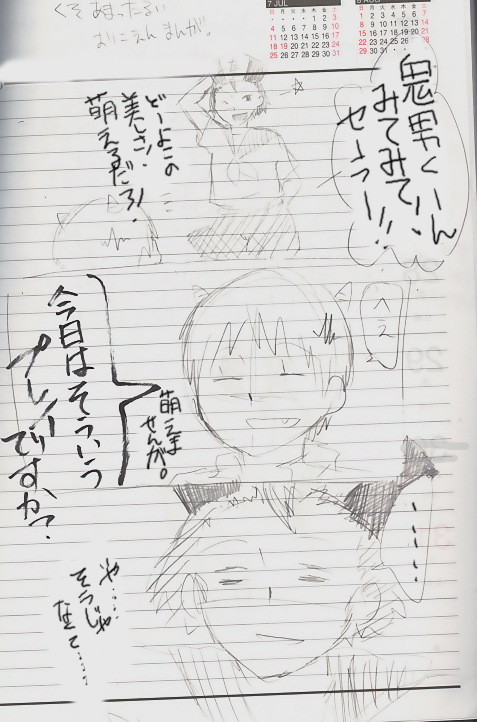 くそあまったるい
おにえんまんが。
7 JUL
日 月 火 水 木 金 土
・ ・ ・ ・ 1 2 3
4 5 6 7 8 9 10
11 12 13 14 15 16 17
18 19 20 21 22 23 24
25 26 27 28 29 30 31
8 AUG
日 月 火 水 木 金 土
1 2 3 4 5 6 7
8 9 10 11 12 13 14
15 16 17 18 19 20 21
22 23 24 25 26 27 28
鬼男くーん
みてみて!、
セーラー!!
どーよこの
美しさ!
萌えるだろ!
へえ
萌えま
せんが。
今日はそういう
プレイですか?
……
や……
そうじゃ
なくて……